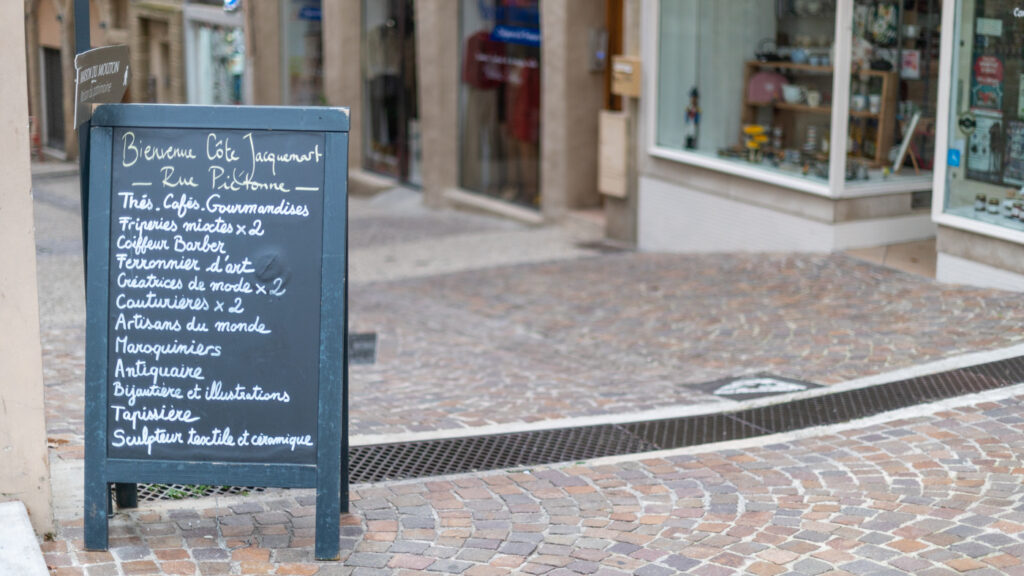 MAISON DU MOUTON
Bienvenue Côté Jacquemart
— Rue Pictonne —
Thés. Cafés. Gourmandises
Friperies mixtes x 2
Coiffeur Barber
Ferronnier d'art
Créatrices de mode x 2
Couturières x 2
Artisans du monde
Maroquiniers
Antiquaire
Bijoutière et illustrations
Tapissière
Sculpteur textile et céramique